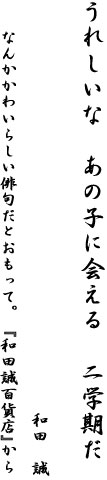 うれしいな　あの子に会える　二学期だ
なんかかわいらしい俳句だとおもって。『和田誠百貨店』から
和田　誠